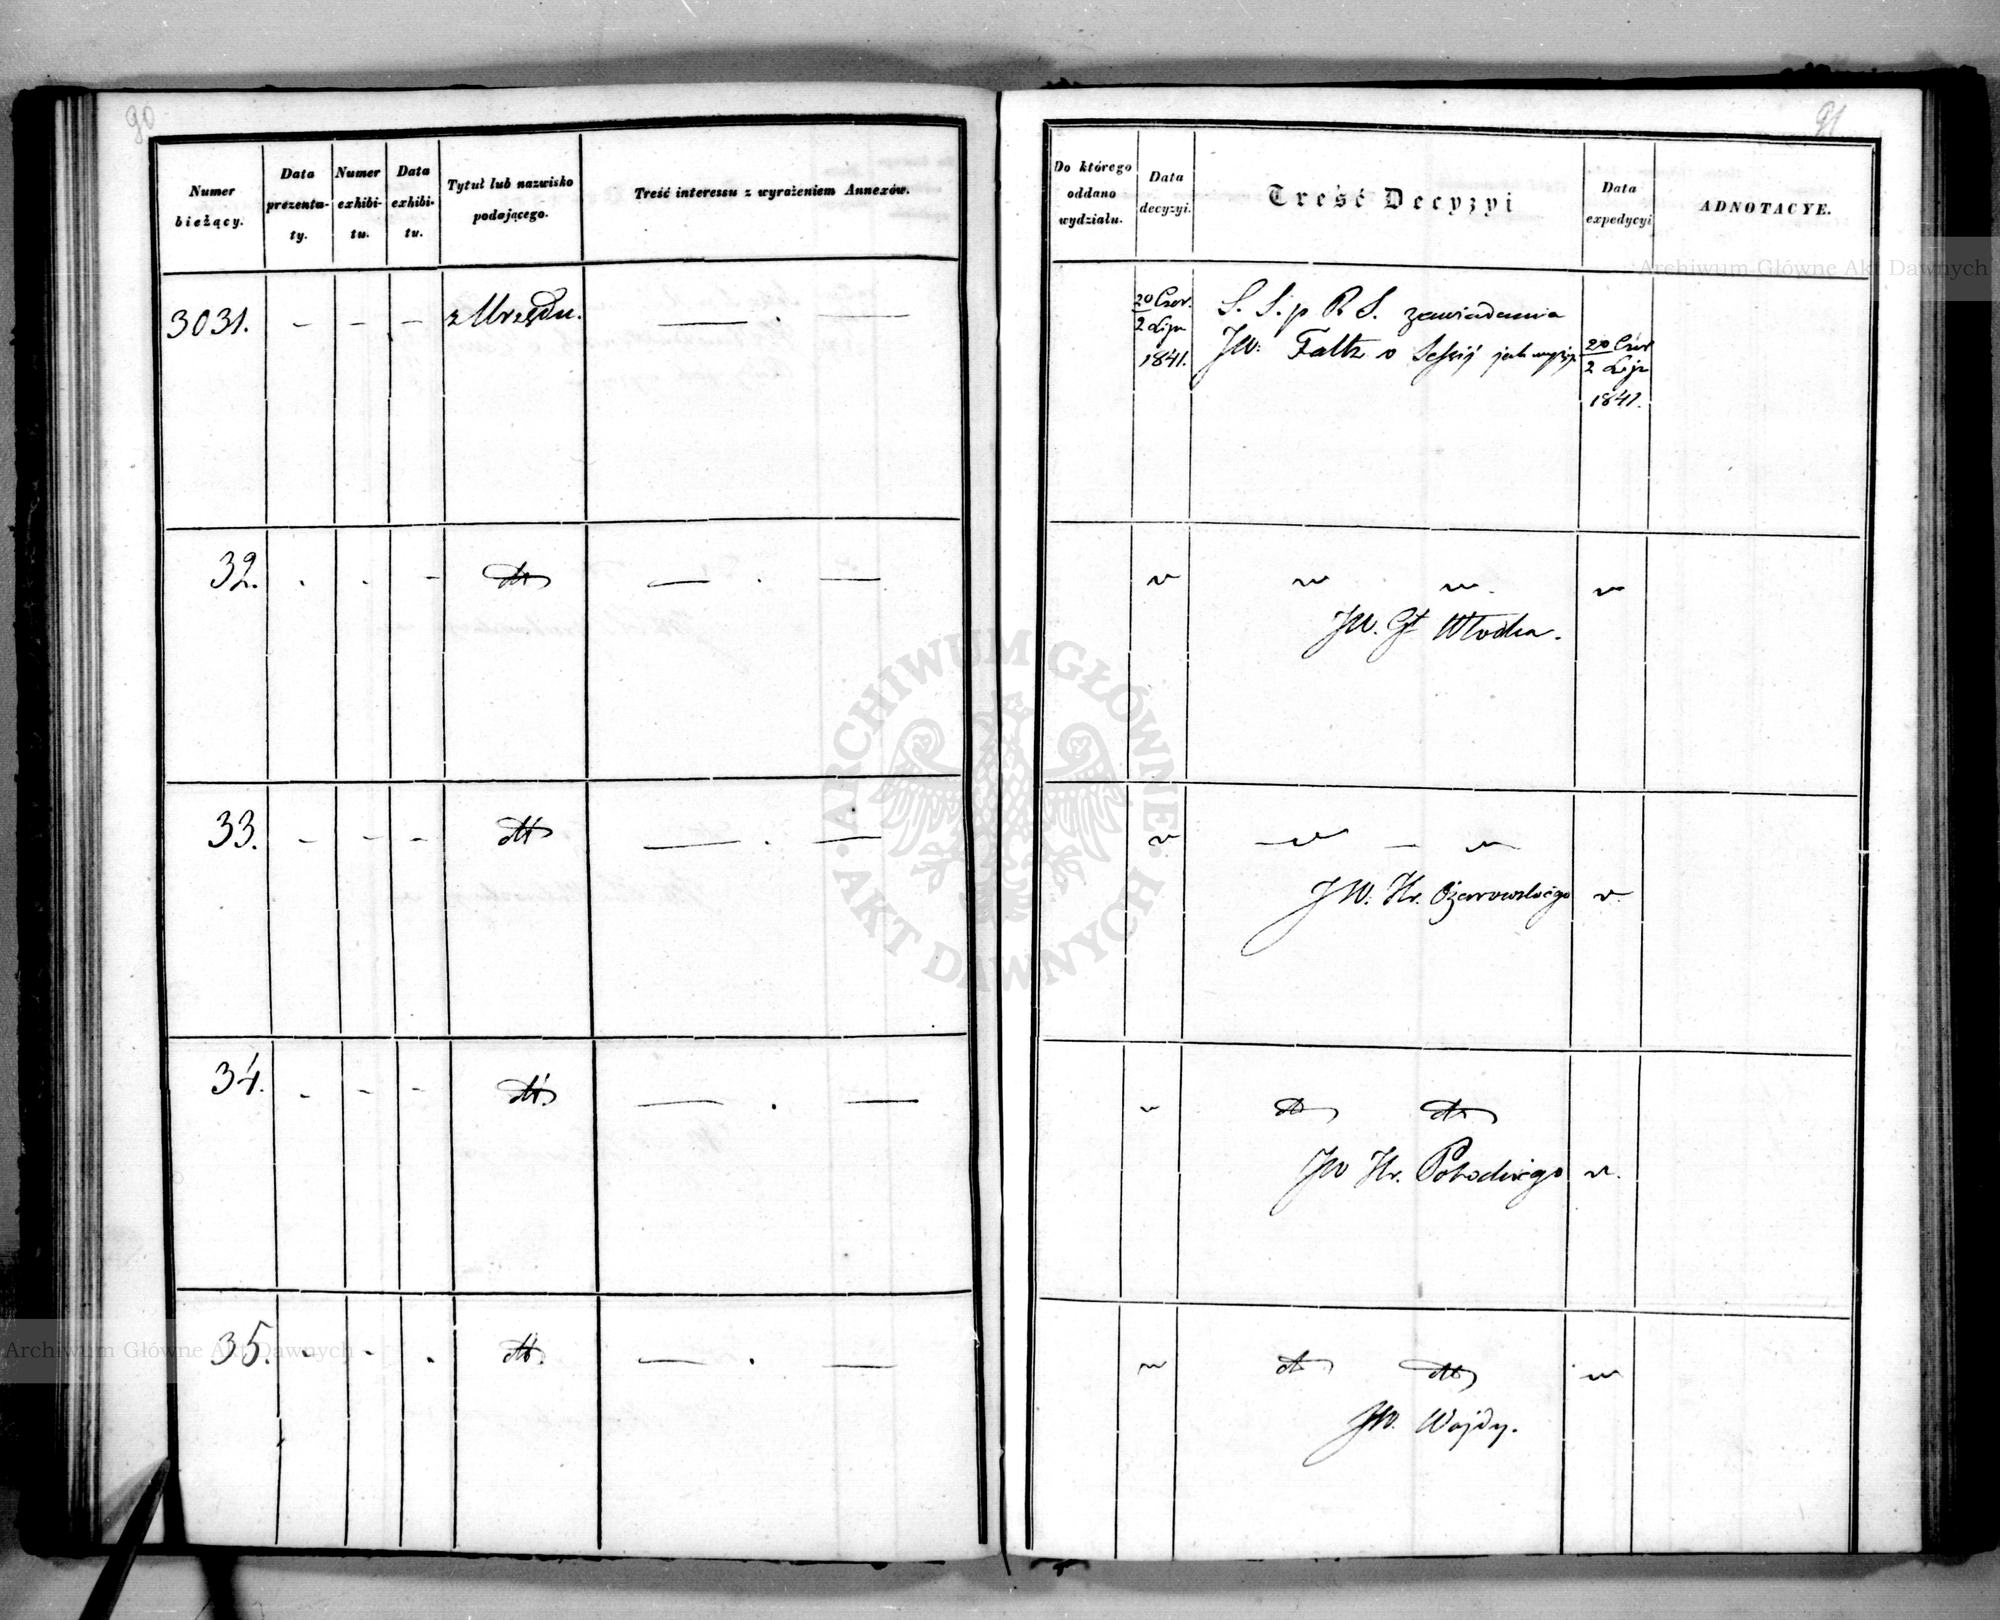 90
Numer
bieżący.
Data
prezenta-
ty.
Numer
exhibi-
tu.
Data
exhibi-
tu.
Tytuł lub nazwisko
podającego.
Treść interessu z wyrażeniem Annexów.
3031. - - - z Urzędu. — . —
32. - - - dto — . —
33. - - - dto — . —
34. - - - dto — . —
35. - - - dto. — . —
91
Do którego
oddano
wydziału.
Data
decyzyi.
Treść Decyzyi
Data
expedycyi
ADNOTACYE.
20 Czer.
2 Lip
1841.
S. S. p R. S. zawiadamia
JW: Faltz o Sessij jak wyżej
20 Czer
2 Lip
1841.
JW. Gł Włodka.
JW. Hr. Ożarowskiego
dto dto
JW Hr. Potockiego
dto dto
JW. Wojdy.
ARCHIWUM GŁÓWNE
AKT DAWNYCH
Archiwum Główne Akt Dawnych
Archiwum Główne Akt Dawnych